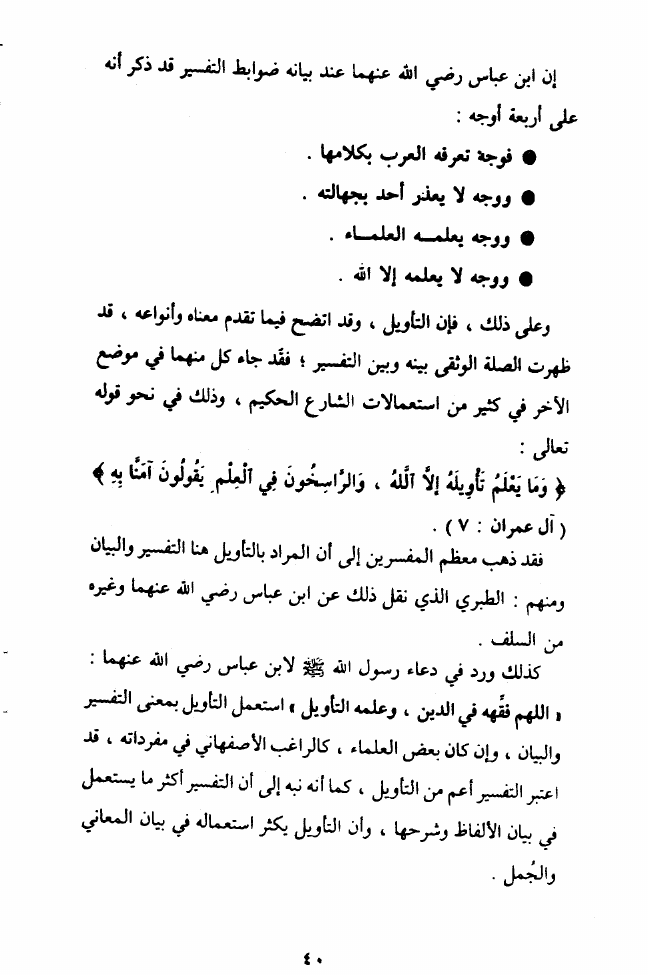 إن ابن عباس رضي الله عنهما عند بيانه ضوابط التفسير قد ذكر أنه
على أربعة أوجه :
● فوجة تعرفه العرب بكلامها .
● ووجه لا يعذر أحد بجهالته .
● ووجه يعلمـــه العلمـــاء .
● ووجه لا يعلمه إلا الله .
وعلى ذلك ، فإن التأويل ، وقد اتضح فيما تقدم معناه وأنواعه ، قد
ظهرت الصلة الوثقى بينه وبين التفسير ؛ فقد جاء كل منهما في موضع
الآخر في كثير من استعمالات الشارع الحكيم ، وذلك في نحو قوله
تعالى :
﴿ وَمَا يَعْلَمُ تَأْوِيلَهُ إلاَّ ٱللَّهُ ، وَالرَّاسِخُونَ فِي ٱلْعِلْمِ يَقُولُونَ آمَنَّا بِهِ ﴾
( آل عمران : ٧ ) .
فقد ذهب معظم المفسرين إلى أن المراد بالتأويل هنا التفسير والبيان
ومنهم : الطبري الذي نقل ذلك عن ابن عباس رضي الله عنهما وغيره
من السلف .
كذلك ورد في دعاء رسول الله ﷺ لابن عباس رضي الله عنهما :
« اللهم فقَّهه في الدين ، وعلمه التأويل » استعمل التأويل بمعنى التفسير
والبيان ، وإن كان بعض العلماء ، كالراغب الأصفهاني في مفرداته ، قد
اعتبر التفسير أعم من التأويل ، كما أنه نبه إلى أن التفسير أكثر ما يستعمل
في بيان الألفاظ وشرحها ، وأن التأويل يكثر استعماله في بيان المعاني
والجُمل .
٤٠